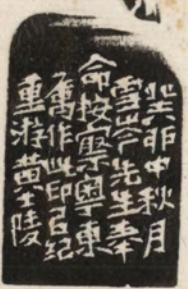 癸卯中秋月
雪岑先生奉
命按察粤東
爲作此印㠯紀
重游黄士陵